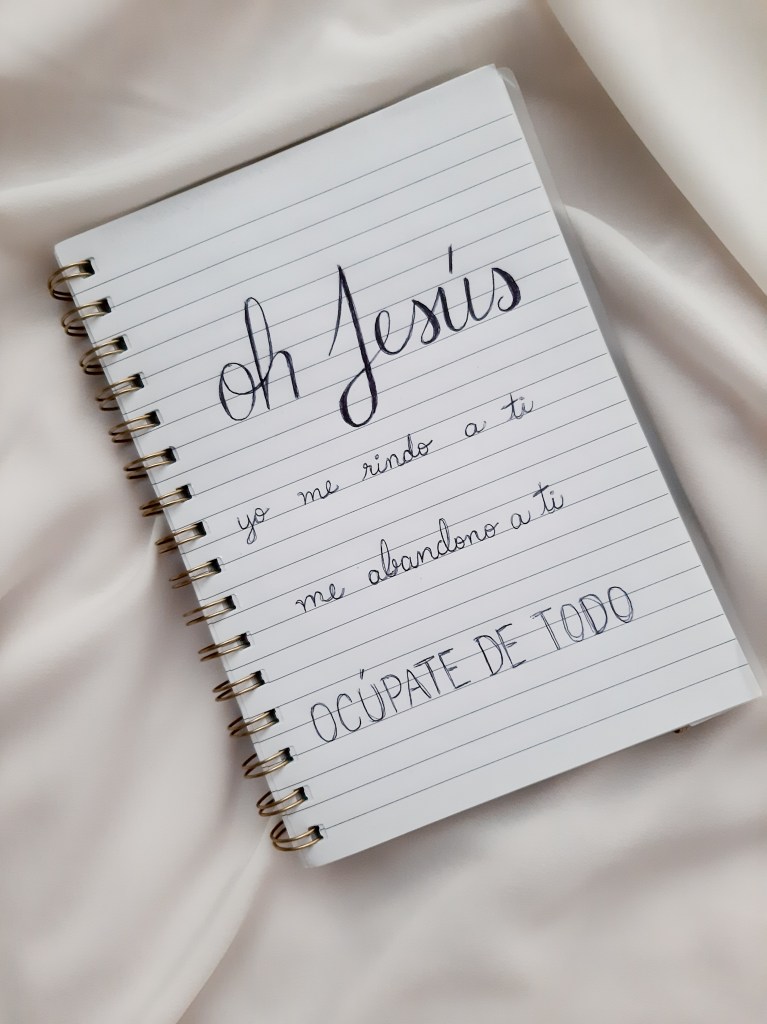 oh Jesús
yo me rindo a ti
me abandono a ti
OCÚPATE DE TODO